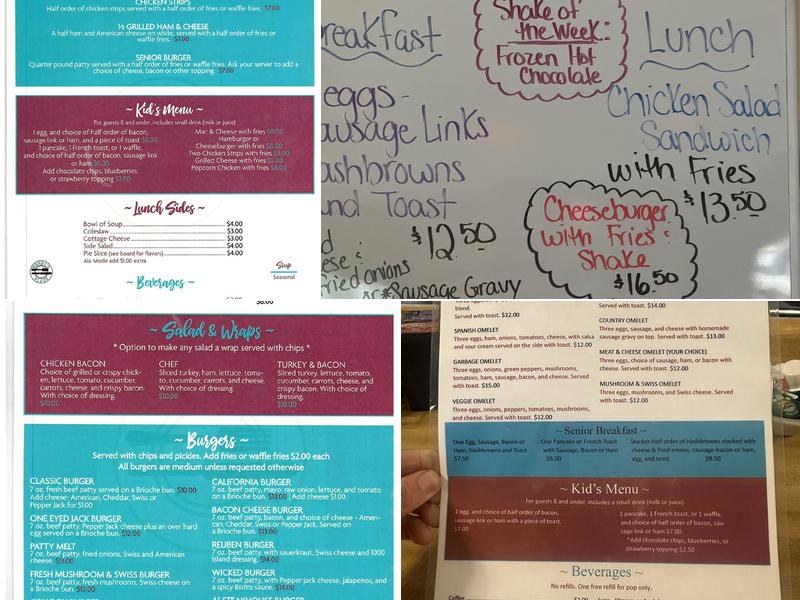 CHICKEN STRIPS
Half order of chicken strips served with a half order of fries or waffle fries. $7.00
½ GRILLED HAM & CHEESE
A half ham and American cheese on white, served with a half order of fries or
waffle fries. $7.00
SENIOR BURGER
Quarter pound patty served with a half order of fries or waffle fries. Ask your server to add a
choice of cheese, bacon or other topping. $7.00
~ Kid's Menu ~
For guests 8 and under, includes small drink (milk or juice)
1 egg, and choice of half order of bacon,
sausage link or ham, and a piece of toast $6.00
1 pancake, 1 French toast, or 1 waffle,
and choice of half order of bacon, sausage link
or ham $6.00
Add chocolate chips, blueberries,
or strawberry topping $2.00
Mac & Cheese with fries $8.00
Hamburger or
Cheeseburger with fries $8.00
Two Chicken Strips with fries $8.00
Grilled Cheese with fries $5.00
Popcorn Chicken with fries $8.00
~ Lunch Sides ~
Bowl of Soup $4.00
Coleslaw $3.00
Cottage Cheese $3.00
Side Salad $4.00
Pie Slice (see board for flavors) $4.00
Ala Mode add $1.00 extra
Soup
Seasonal
~ Beverages ~
reakfast
eggs -
ausage Links
ashbrowns
nd Toast
$12.50
ese &
ried onions
Sausage Gravy
Shake of
the Week:
Frozen Hot
Chocolate
Lunch
Chicken Salad
Sandwich
with Fries
$13.50
Cheeseburger
with Fries &
Shake
$16.50
~ Salad & Wraps ~
* Option to make any salad a wrap served with chips *
CHICKEN BACON
Choice of grilled or crispy chick-
en, lettuce, tomato, cucumber,
carrots, cheese, and crispy bacon.
With choice of dressing.
$10.00
CHEF
Sliced turkey, ham, lettuce, toma-
to, cucumber, carrots, and cheese.
With choice of dressing.
$10.00
TURKEY & BACON
Sliced turkey, lettuce, tomato,
cucumber, carrots, cheese, and
crispy bacon. With choice of
dressing.
$10.00
~ Burgers ~
Served with chips and pickles. Add fries or waffle fries $2.00 each
All burgers are medium unless requested otherwise
CLASSIC BURGER
7 oz. fresh beef patty served on a Brioche bun. $10.00
Add cheese- American, Cheddar, Swiss or
Pepper Jack for $1.00
ONE EYED JACK BURGER
7 oz. beef patty, Pepper Jack cheese plus an over hard
egg served on a Brioche bun. $12.00
PATTY MELT
7 oz. beef patty, fried onions, Swiss and American
cheese. $13.00
FRESH MUSHROOM & SWISS BURGER
7 oz. beef patty, fresh mushrooms, Swiss cheese on
a Brioche bun. $13.00
CALIFORNIA BURGER
7 oz. beef patty, mayo, raw onion, lettuce, and tomato
on a Brioche bun. $13.00 | Add cheese $1.00
BACON CHEESE BURGER
7 oz. beef patty, bacon, and choice of cheese - Ameri-
can, Cheddar, Swiss or Pepper Jack. Served on
a Brioche bun. $13.00
REUBEN BURGER
7 oz. beef patty, with sauerkraut, Swiss cheese and 1000
Island dressing. $14.00
WICKED BURGER
7 oz. beef patty, with Pepper Jack cheese, jalapenos, and
a spicy Bistro sauce. $14.00
blend.
Served with toast. $12.00
SPANISH OMELET
Three eggs, ham, onions, tomatoes, cheese, with salsa
and sour cream served on the side with toast. $12.00
GARBAGE OMELET
Three eggs, onions, green peppers, mushrooms,
tomatoes, ham, sausage, bacon, and cheese. Served
with toast. $15.00
VEGGIE OMELET
Three eggs, onions, peppers, tomatoes, mushrooms,
and cheese. Served with toast. $12.00
Served with toast. $14.00
COUNTRY OMELET
Three eggs, sausage, and cheese with homemade
sausage gravy on top. Served with toast. $13.00
MEAT & CHEESE OMELET (YOUR CHOICE)
Three eggs, choice of sausage, ham, or bacon with
cheese. Served with toast. $12.00
MUSHROOM & SWISS OMELET
Three eggs, mushrooms, and Swiss cheese. Served
with toast. $12.00
~ Senior Breakfast ~
One Egg, Sausage, Bacon or
Ham, Hashbrowns and Toast
$7.50
One Pancake or French Toast
with Sausage, Bacon or Ham
$6.00
Stacker-Half order of Hashbrowns stacked with
cheese & fried onions, sausage-bacon-or ham,
egg, and toast $9.50
~ Kid's Menu ~
For guests 8 and under, includes small drink (milk or juice).
1 egg, and choice of half order of bacon,
sausage link or ham with a piece of toast.
$7.00
1 pancake, 1 French toast, or 1 waffle,
and choice of half order of bacon, sau-
sage link or ham $7.00
*Add chocolate chips, blueberries, or
strawberry topping $2.50
~ Beverages ~
No refills. One free refill for pop only.
Coffee